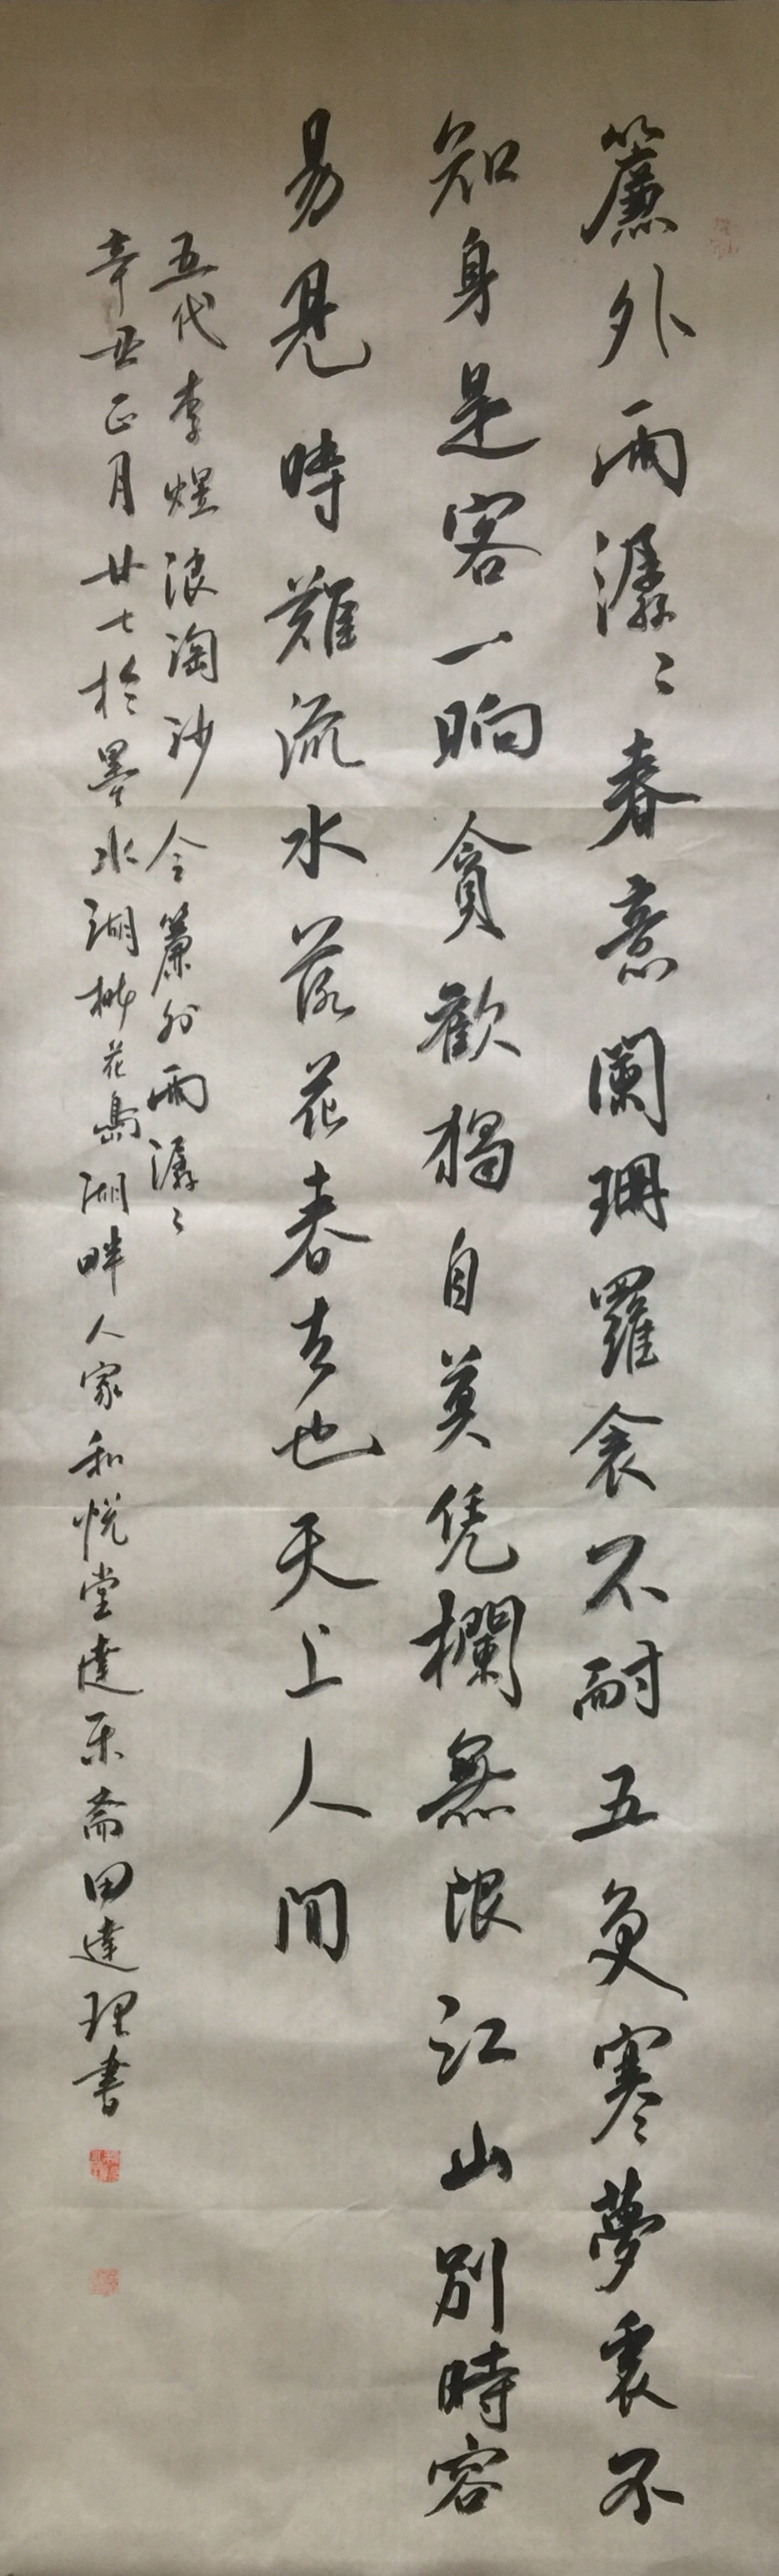 簾外雨潺〻春意闌珊羅衾不耐五更寒夢裏不
知身是客一晌貪歡獨自莫凭欄無限江山別時容
易見時難流水落花春去也天上人間
五代李煜浪淘沙令簾外雨潺〻
辛丑正月廿七於墨水湖桃花島湖畔人家和悅堂達乐斋田達理書